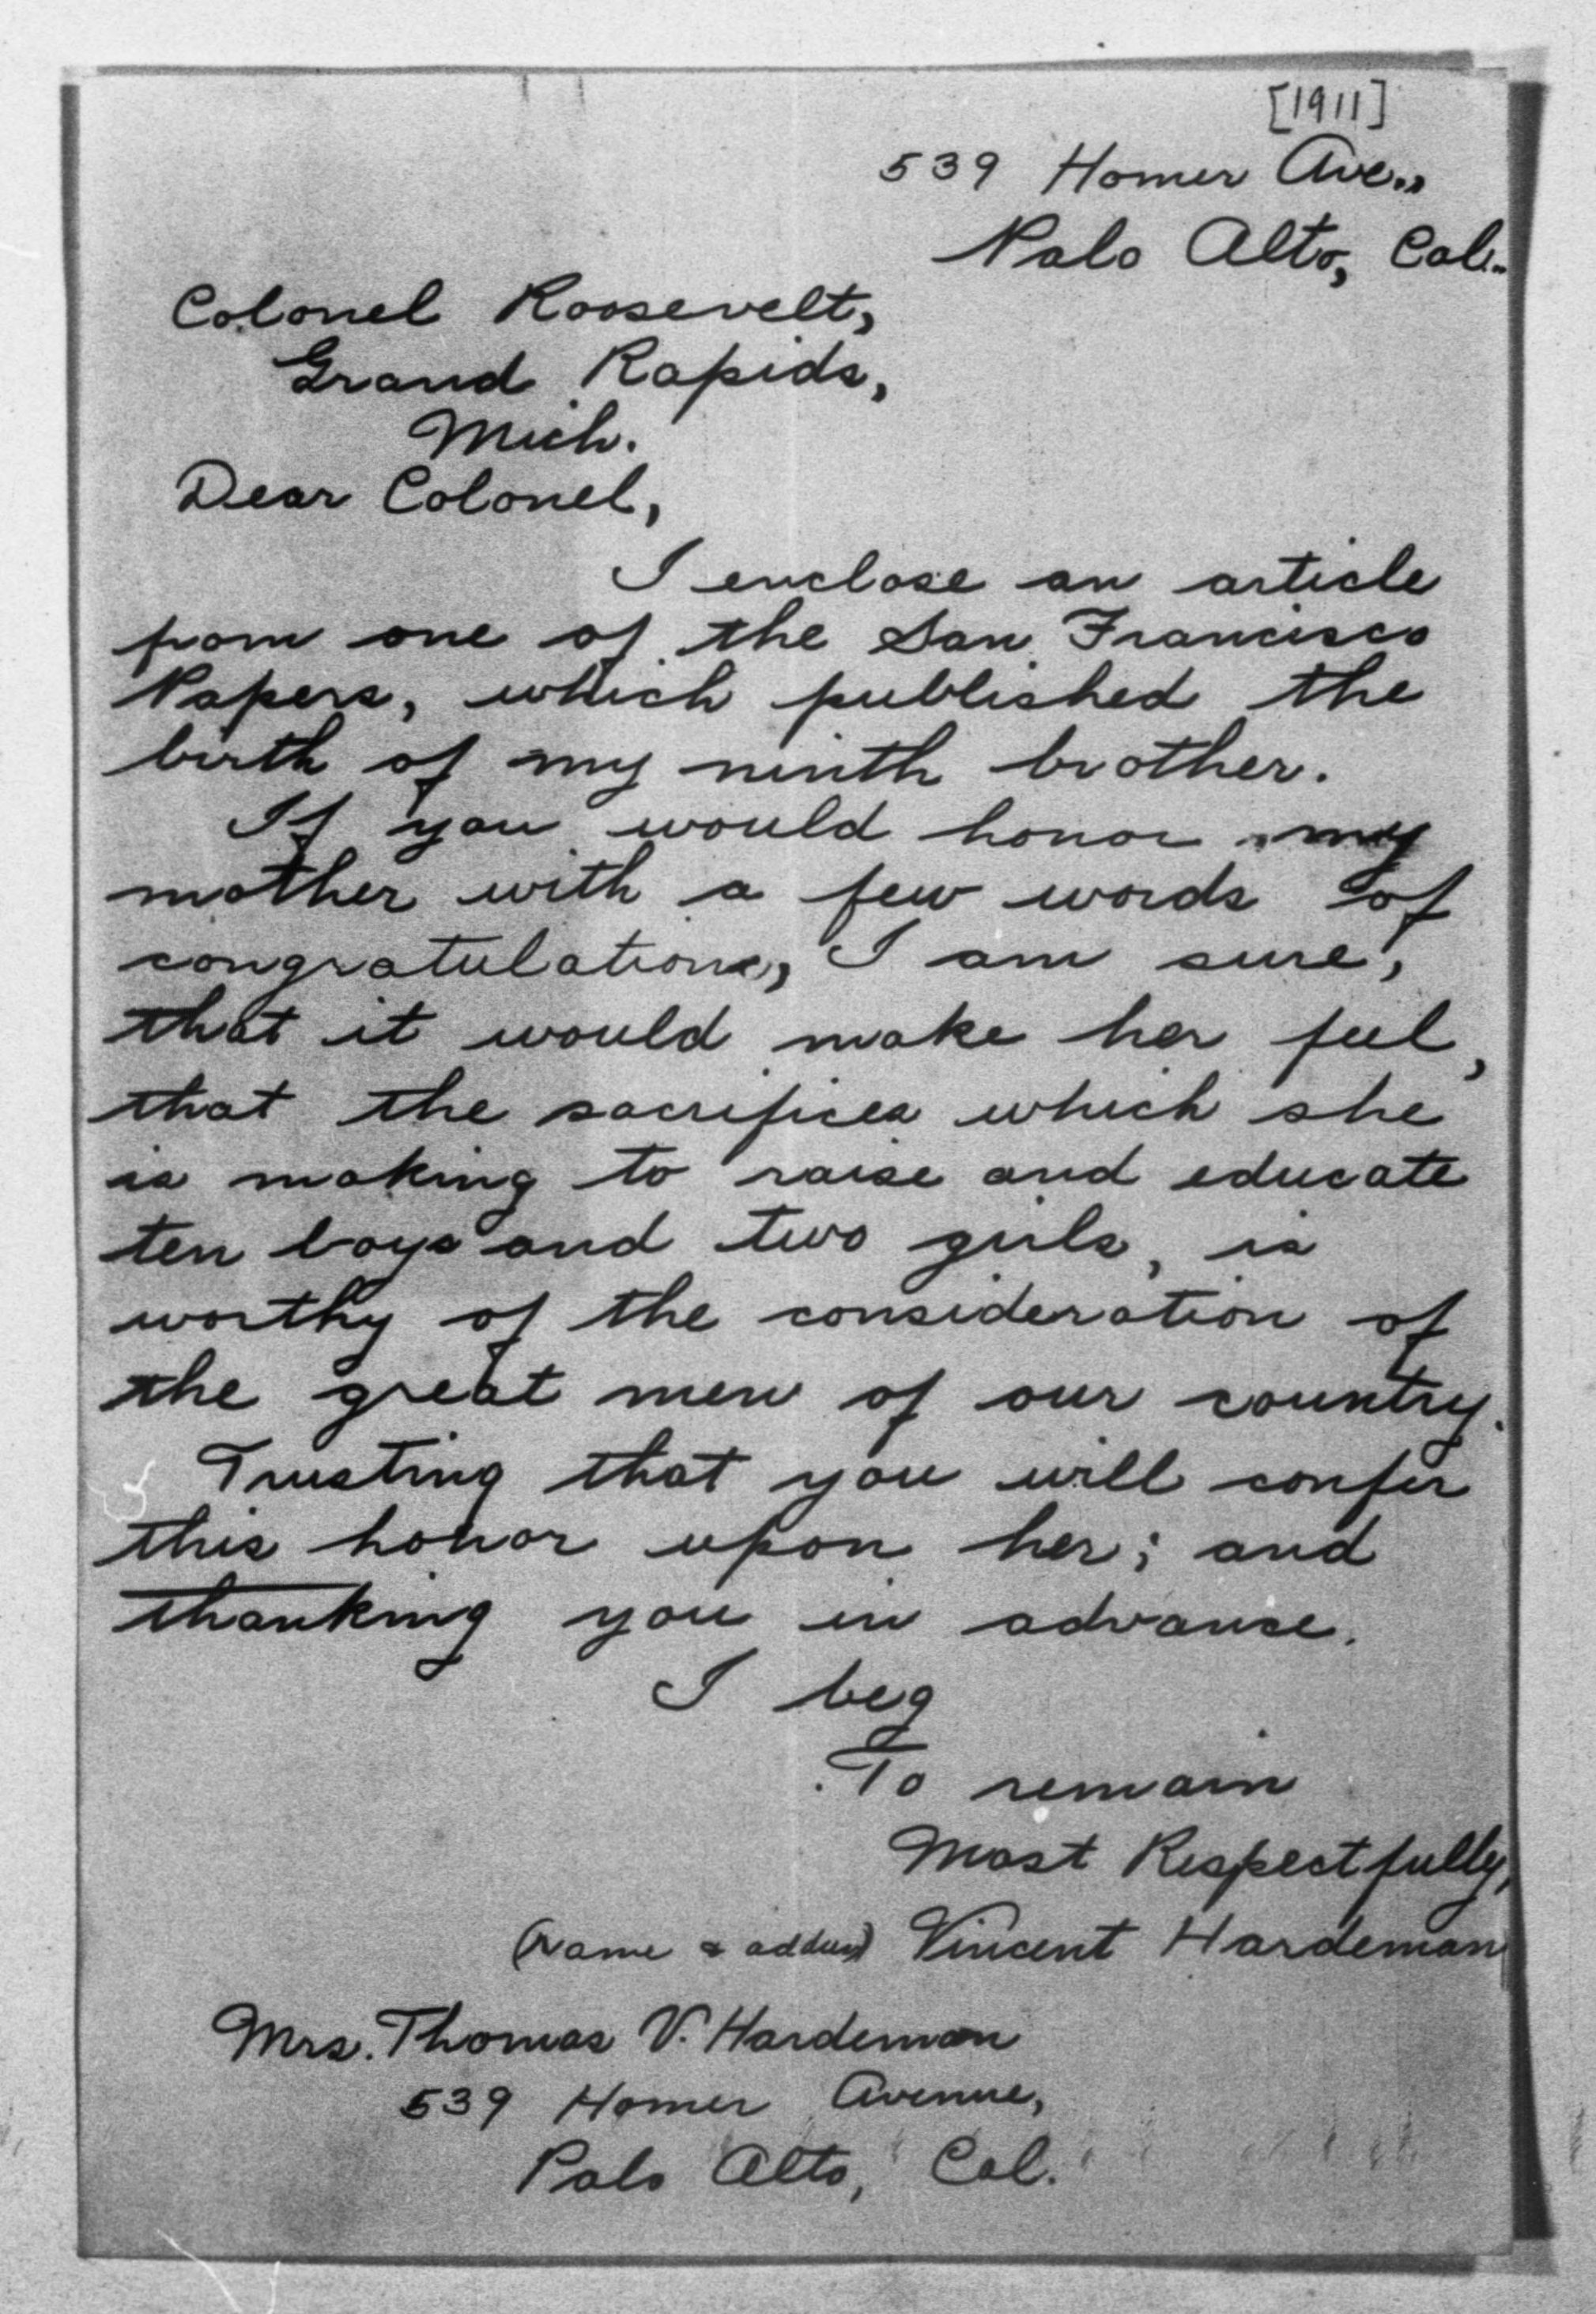 [1911]
539 Homer Ave.,
Palo Alto, Cal.
Colonel Roosevelt,
Grand Rapids,
Mich.
Dear Colonel,
I enclose an article
from one of the San Francisco
Papers, which published the
birth of my ninth brother.
If you would honor my
mother with a few words of
congratulations, I am sure,
that it would make her feel,
that the sacrifices which she
is making to raise and educate
ten boys and two girls, is
worthy of the consideration of
the great men of our country.
Trusting that you will confer
this honor upon her; and
thanking you in advance.
I beg
To remain
Most Respectfully,
(Name & address) Vincent Hardeman
Mrs. Thomas V. Hardeman
539 Homer Avenue,
Palo Alto, Cal.